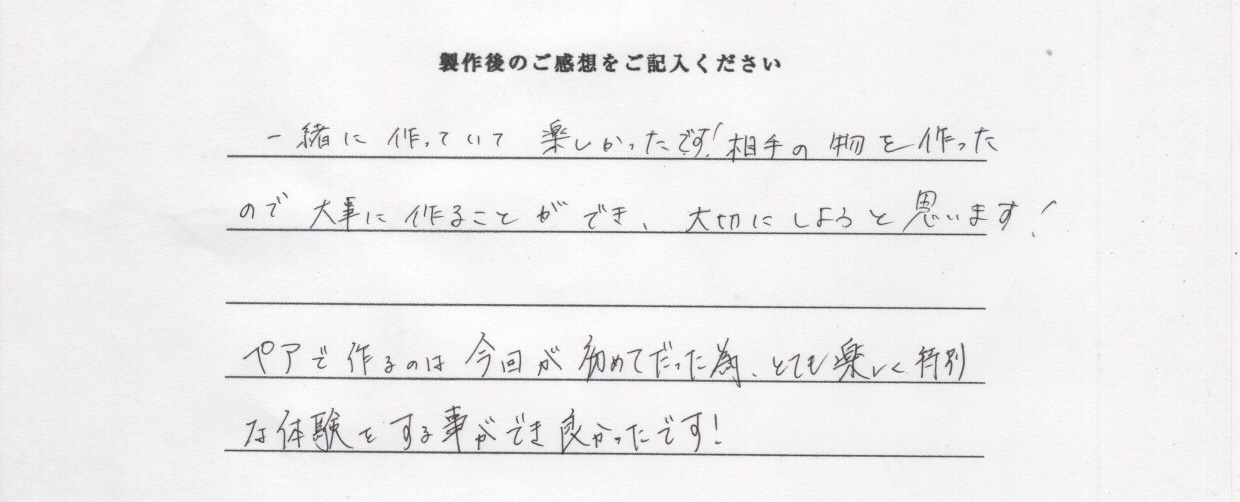 製作後のご感想をご記入ください
一緒に作っていて楽しかったです!相手の物を作った
ので大事に作ることができ、大切にしようと思います!
ペアで作るのは今回が初めてだった為、とても楽しく特別
な体験をする事ができ良かったです!